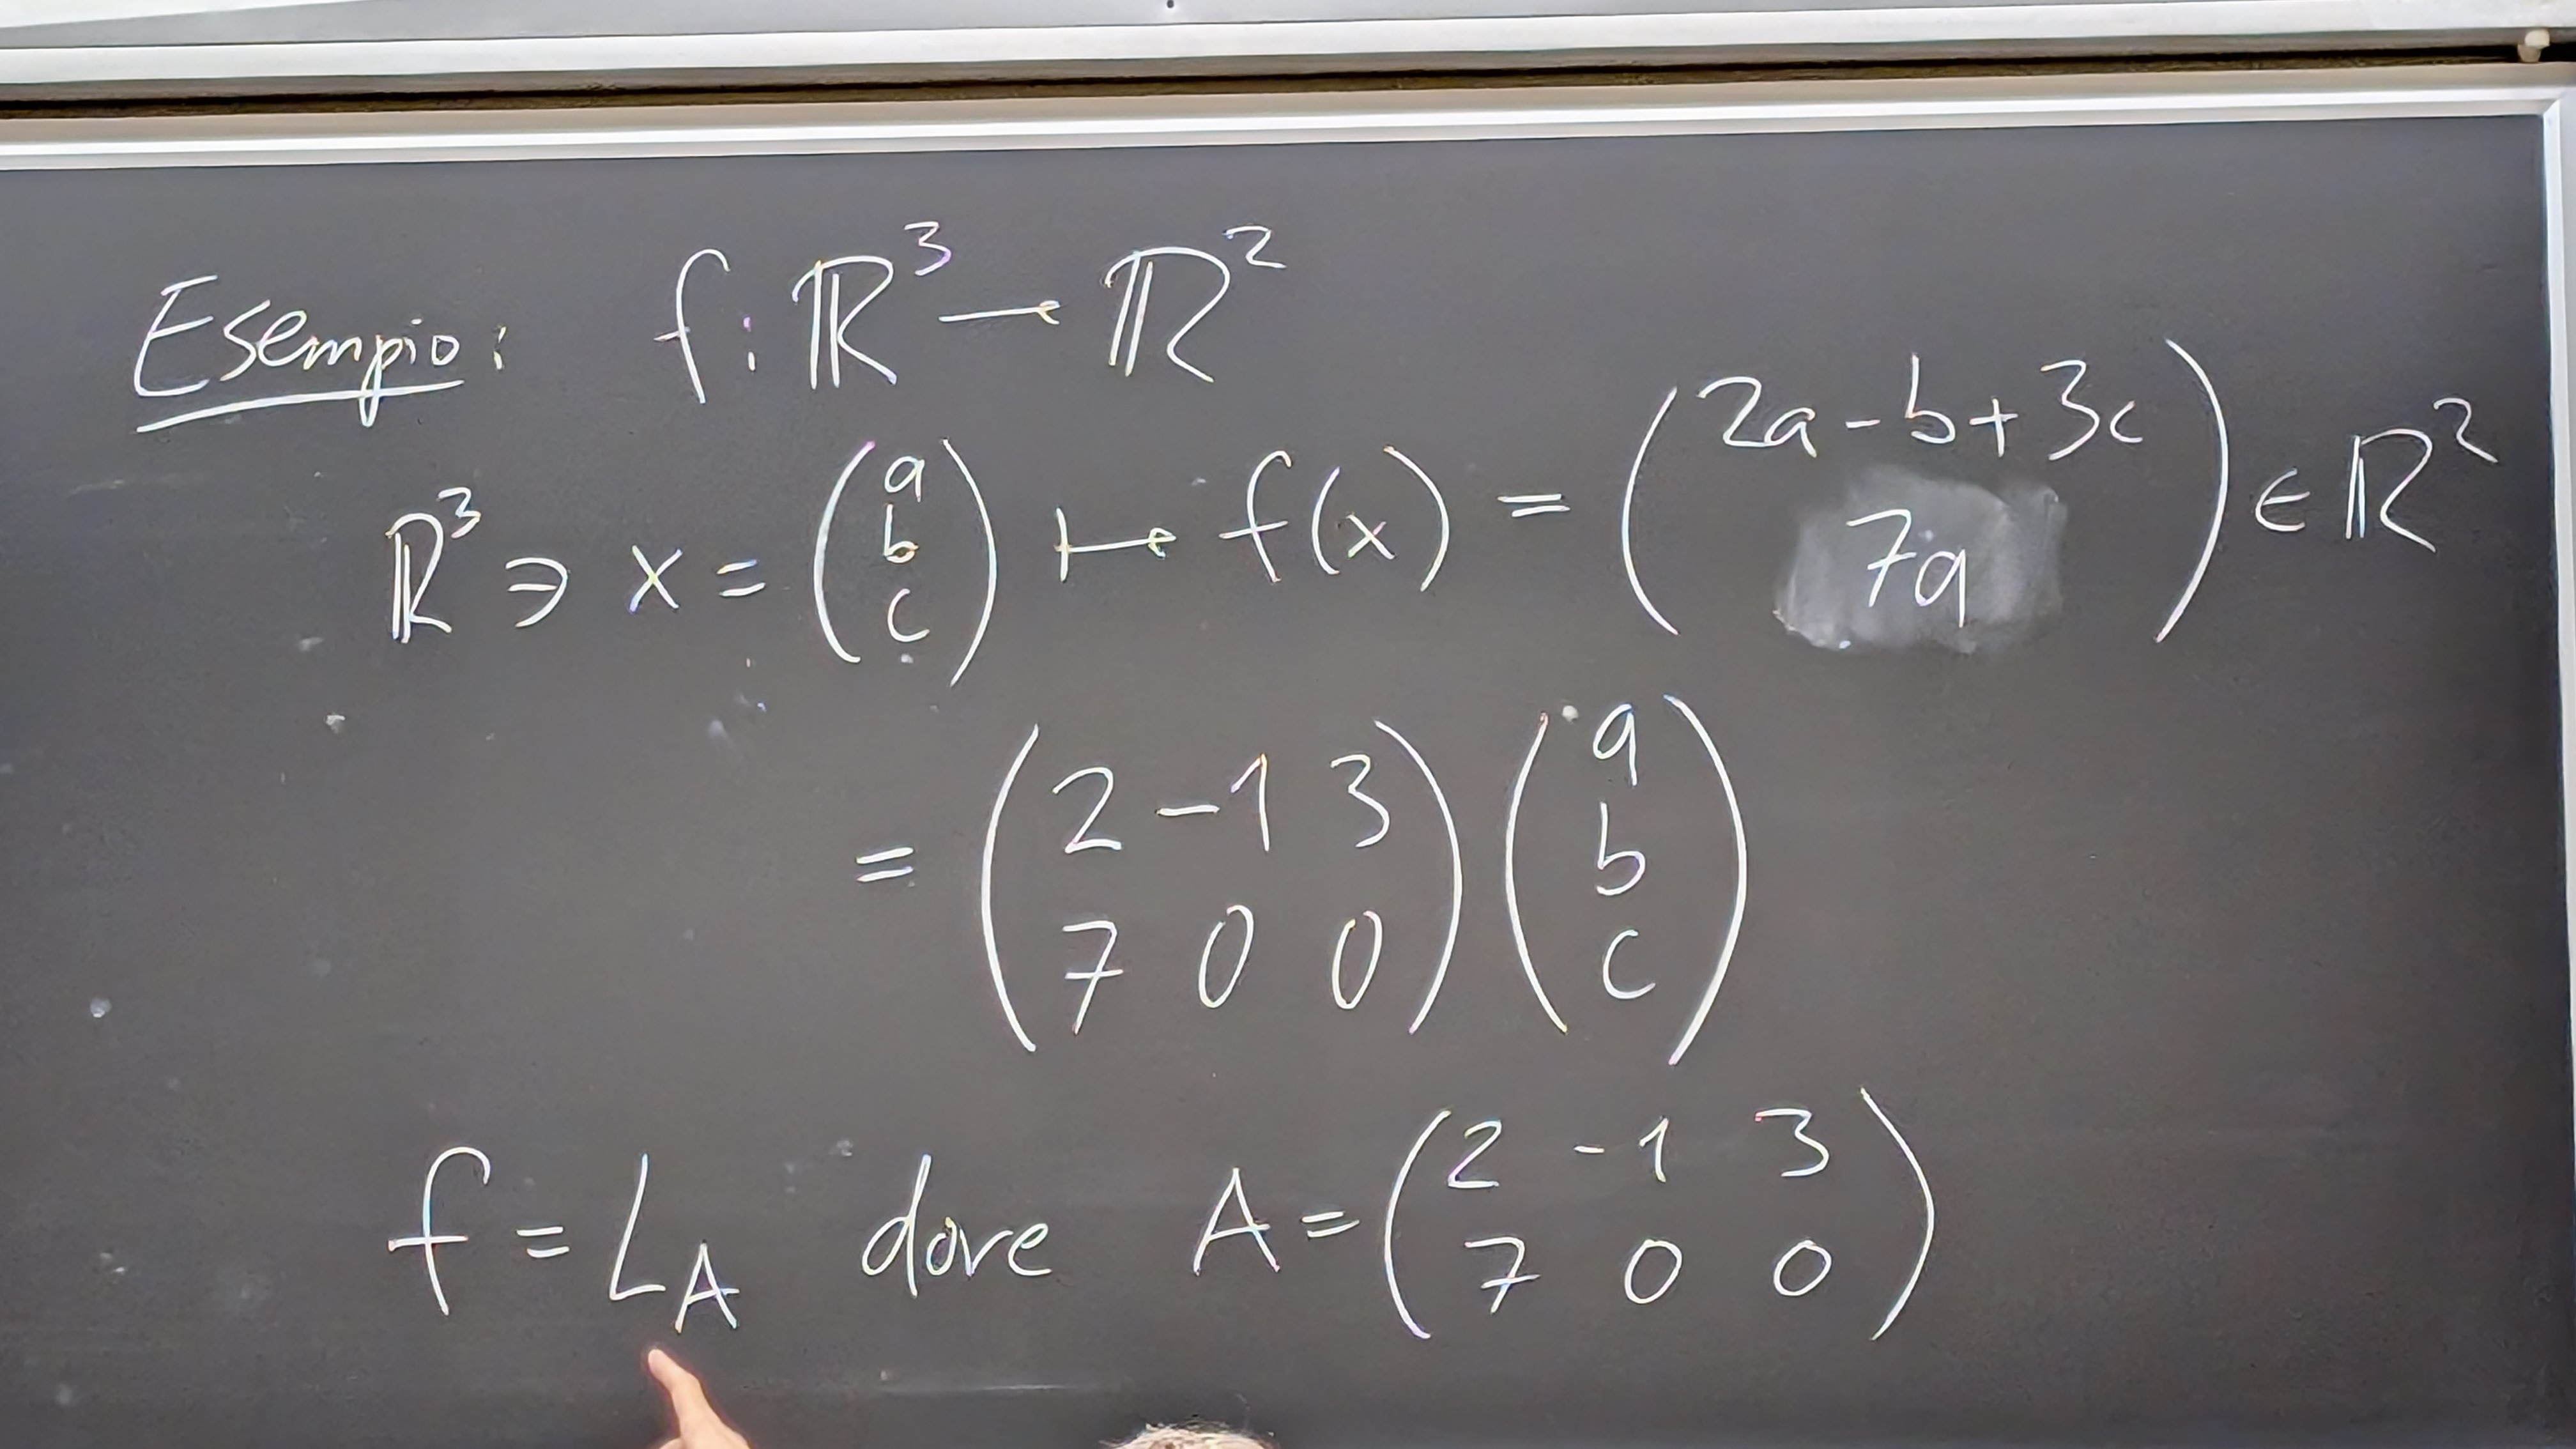 Esempio: f: ℝ³ → ℝ²
ℝ³ ∋ x = (a b c) ↦ f(x) = (2a - b + 3c 7a) ∈ ℝ²
= (2 -1 3 7 0 0) (a b c)
f = L_A dove A = (2 -1 3 7 0 0)